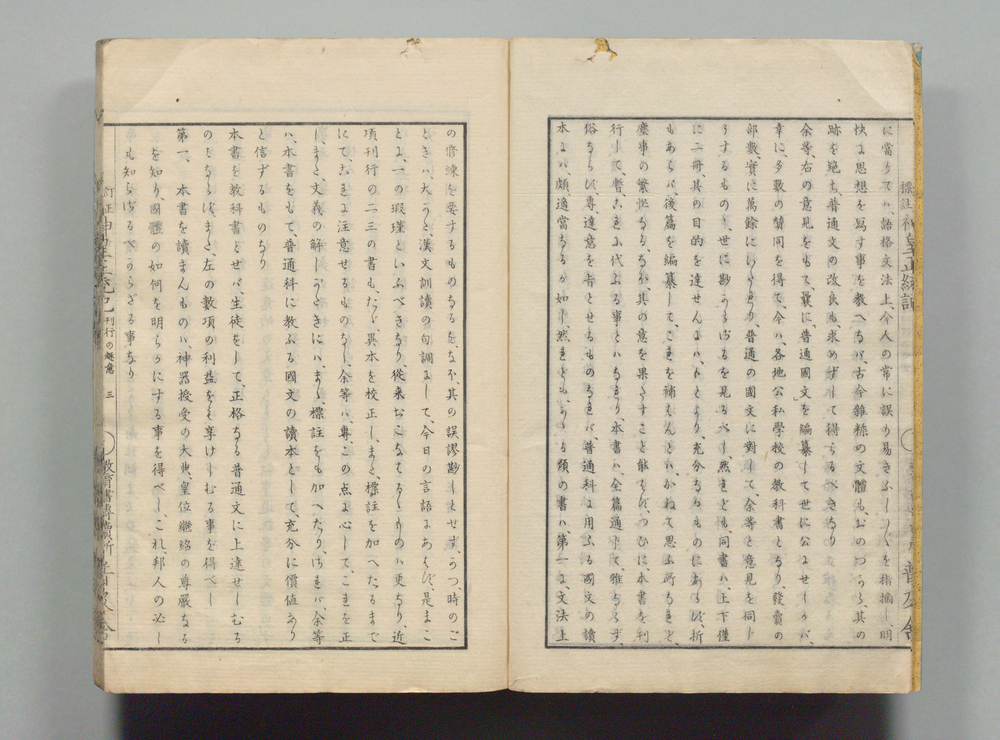 に當りてハ、語格文法上今人の常に誤り易きふし〴〵を指摘し、明
快なる思想を寫す事を教へなバ、古今雜糅の文體も、おのづから、其の
跡を絶ち、普通文の改良も求めずして得らるべきなり
余等、右の意見をもて、曩に、普通國文を編纂して世に公にせしかバ、
幸に、多數の賛同を得て、今ハ、各地公私學校の教科書となり、發賣の
部數、實に萬餘にいたり、普通の國文に對して、余等と意見を同じ
うするもの、世に尠からざるを見るべし、然れども、同書ハ、上下僅
に二冊、其の目的を達せんにハ、もとより、充分なるものにあらず、折
もあらバ、後篇を編纂して、これを補はんとハ、かねて思ふ所なれど、
塵事の繁忙なる、なほ、其の意を果たすこと能はず、つひに、本書を刊
行して、暫くこれに代ふる事とハなれり、本書ハ、全篇通じて、雅ならず、
俗ならず、專、達意を旨とせるものなれバ、普通科に用ふる國文の讀
本にハ、頗、適當なるが如し、然れども、かゝる類の書ハ、第一に文法上
の修練を要するものなるを、なほ、其の誤謬尠しとせず、かつ時のご
ときハ、大かた、漢文訓讀の句調にして、今日の言語にあらず、是まこ
とに、一の瑕瑾といふべきなり、從來おこなはれたるものハ更なり、近
頃刊行の二三の書も、たゞ、異本を校正し、また、標註を加へたるまで
にて、これに注意せるものなし、余等ハ、專、この点に心して、これを正
し、また、文義の解しがたきにハ、また、標註をも加へたり、されバ、余等
ハ、本書をもて、普通科に教ふる國文の讀本として、充分に價値あり
と信ずるものなり
本書を教科書とせバ、生徒をして、正格なる普通文に上達せしむる
のみならず、また、左の數項の利益をも享けしむる事を得べし
第一、本書を讀まんものハ、神器授受の大典、皇位繼紹の尊嚴なる
を知り、國體の如何を明らかにする事を得べし、これ、邦人の必し
も知らざるべからざる事なり
刊行の趣意 三